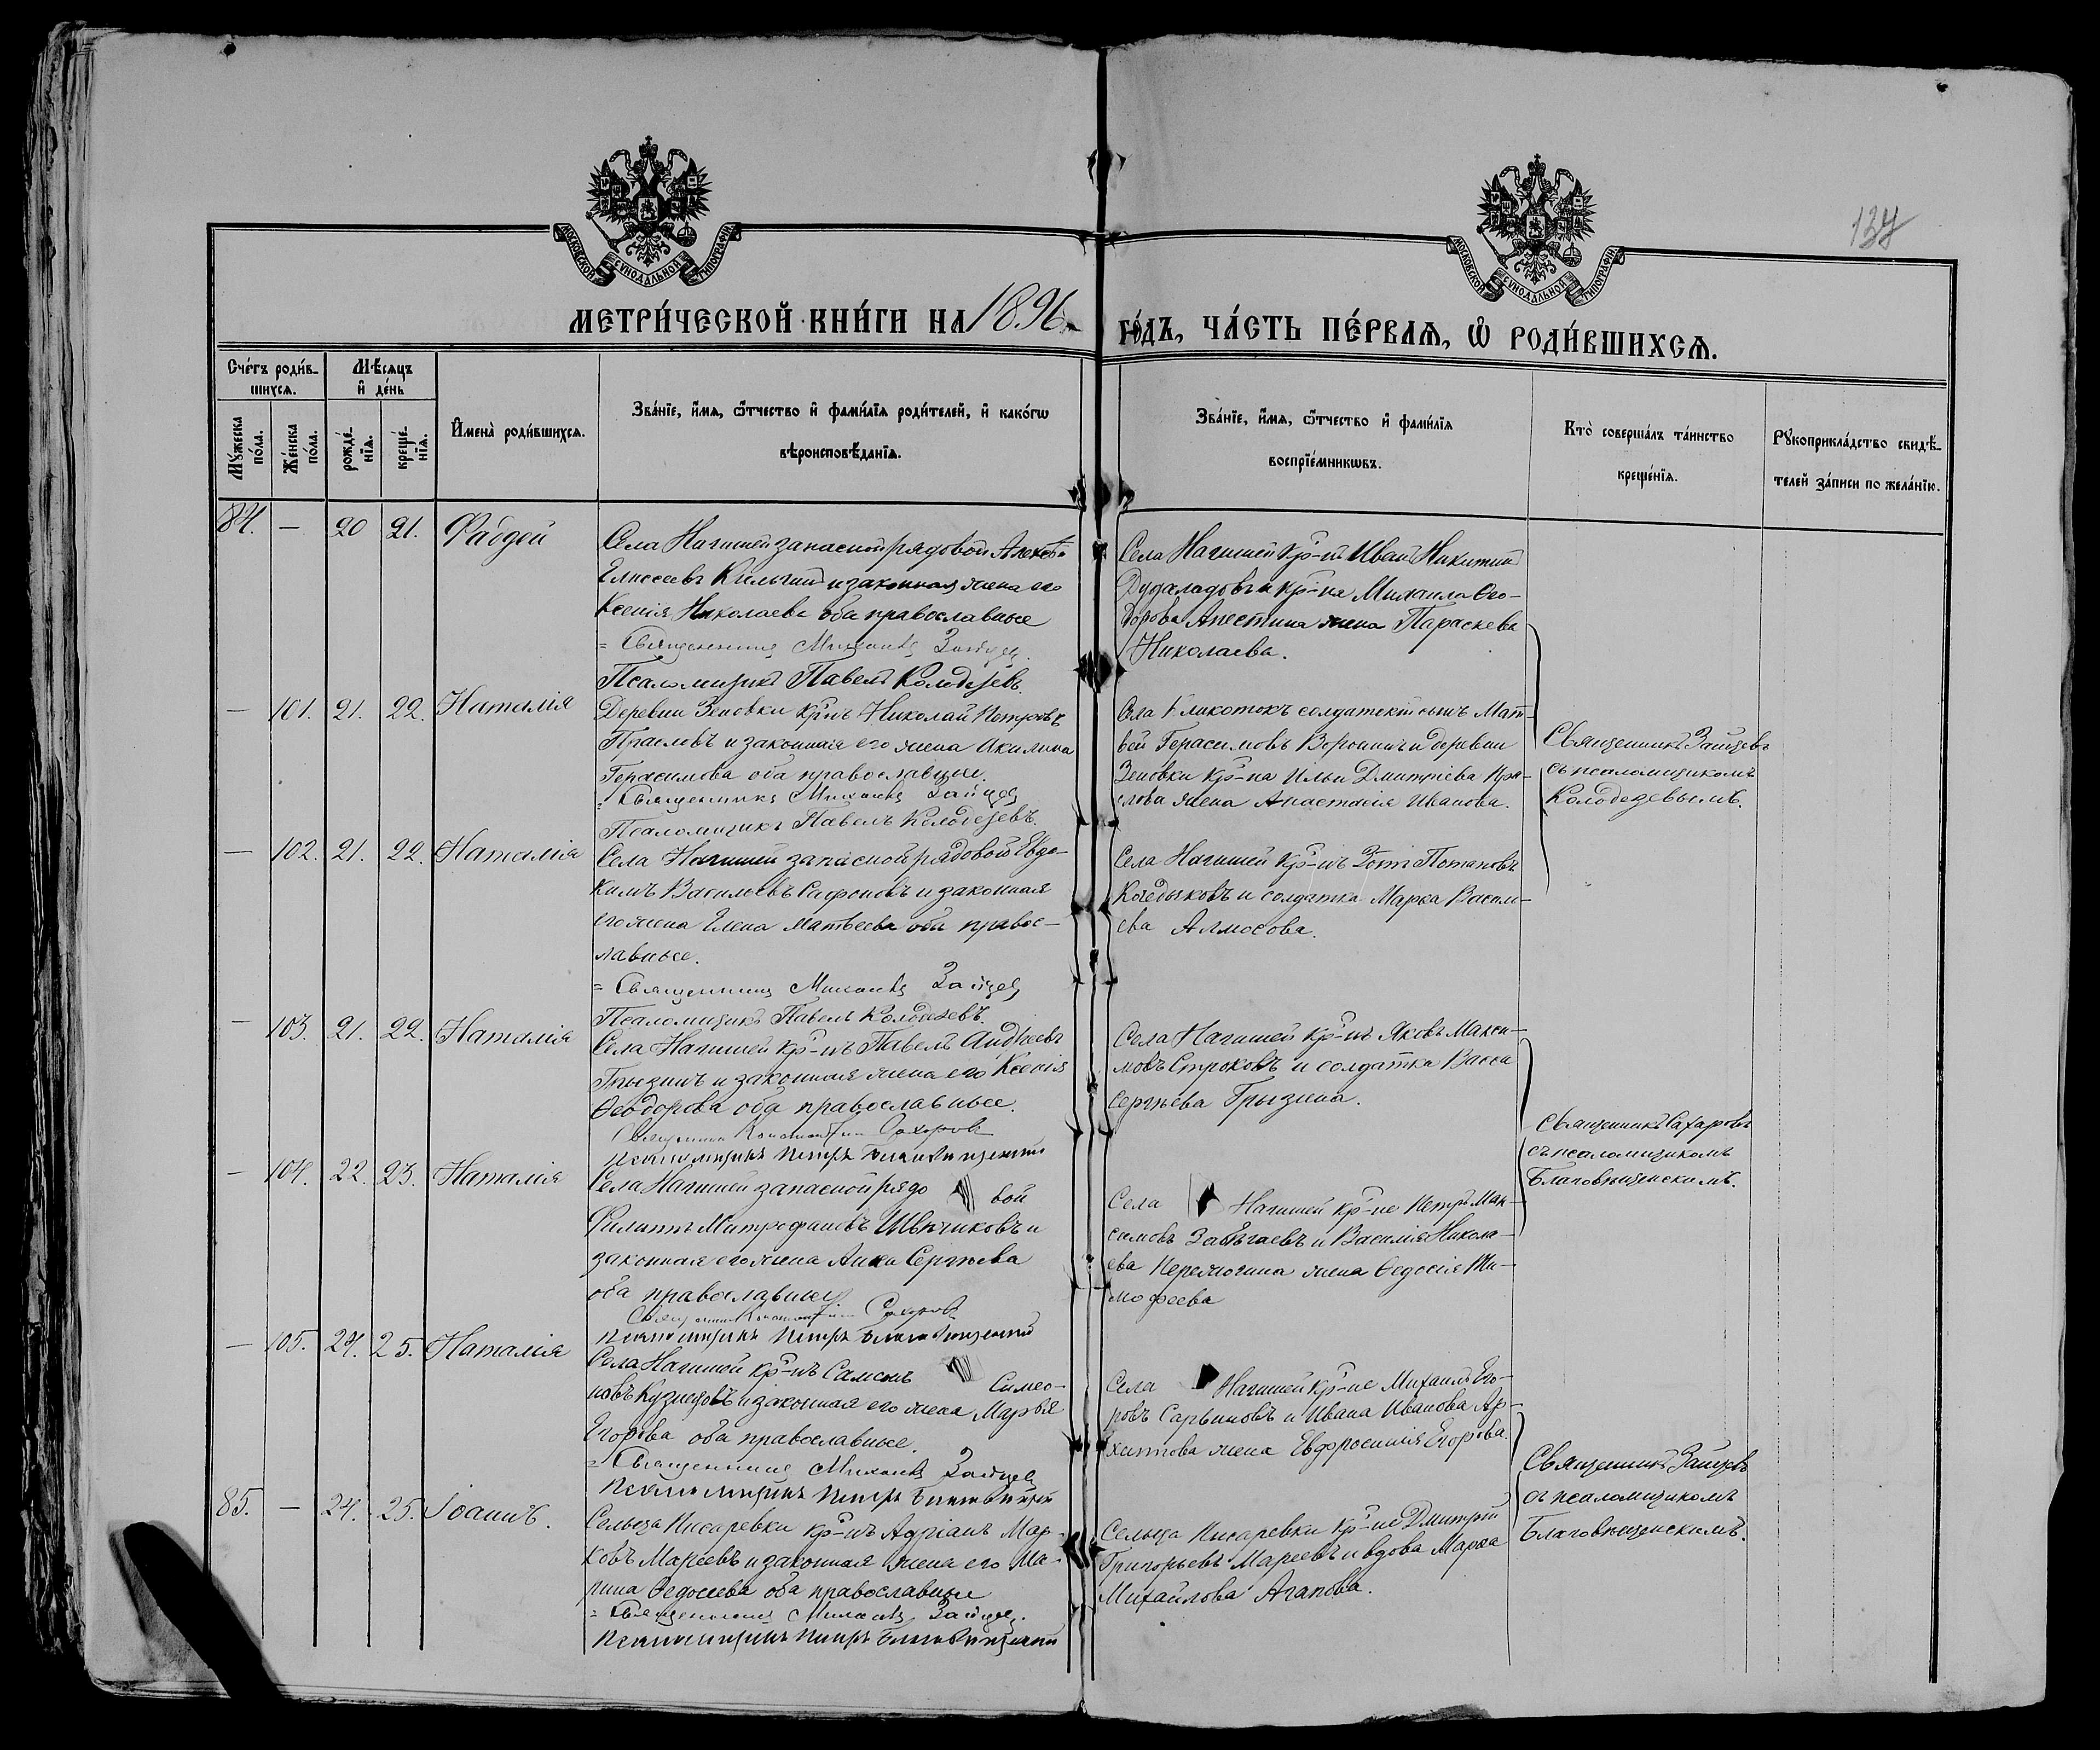 137
МОСКОВСКОЙ СУНОДАЛЬНОЙ ТИПОГРАФІИ
МОСКОВСКОЙ СУНОДАЛЬНОЙ ТИПОГРАФІИ
МЕТРИ́ЧЕСКОЙ КНИ́ГИ НА 1896 ГО́ДЪ, ЧА́СТЬ ПЕ́РВАѦ, Ѡ҆ РОДИ́ВШИХСѦ.
Сче́тъ роди́в-
шихсѧ.
Мѣ́сяцъ
и҆ де́нь
Мꙋ́жеска по́ла.
Же́нска по́ла.
рожде́-
нїѧ.
креще́-
нїѧ.
И҆мена̀ роди́вшихсѧ.
Зва́нїе, и҆́мѧ, ѻ҆́тчество и҆ фами́лїѧ роди́телей, и҆ како́гѡ
вѣроисповѣ́данїѧ.
Зва́нїе, и҆́мѧ, ѻ҆́тчество и҆ фами́лїѧ
воспрїе́мникѡвъ.
Кто̀ соверша́лъ та́инство
креще́нїѧ.
Рꙋкоприкла́дство свидѣ́-
телей за́писи по жела́нїю.
84. — 20 21. Фаддей
Села Нагишей запасной рядовой Алексѣй
Елисеевъ Кильгинъ и законная жена его
Ксенія Николаева оба православные
= Священникъ Михаилъ Зайцев
Псаломщикъ Павелъ Колодезевъ.
Села Нагишей кр-нъ Иванъ Никитинъ
и кр-на Михаила Ѳео-
дорова Апестина жена Параскева
Николаева.
— 101. 21. 22. Наталія
Деревни Зеновки кр-нъ Николай Петровъ
и законная его жена Акилина
Герасимова оба православные.
= Священникъ Михаилъ Зайцев
Псаломщикъ Павелъ Колодезевъ.
Села Кликотокъ солдатскій сынъ Мат-
вѣй Герасимовъ Воронинъ и деревни
Зеновки кр-на Ильи Дмитріева
жена Анастасія Иванова.
Священникъ Зайцевъ
съ псаломщикомъ
Колодезевымъ.
— 102. 21. 22. Наталія
Села Нагишей запасной рядовой Евдо-
кимъ Васильевъ Сафоновъ и законная
его жена Елена Матвѣева оба правос-
лавные.
= Священникъ Михаилъ Зайцев
Псаломщикъ Павелъ Колодезевъ.
Села Нагишей кр-нъ Зотъ Потаповъ
Кочедыковъ и солдатка Марѳа Василь-
ева Алмосова.
— 103. 21. 22. Наталія
Села Нагишей кр-нъ Павелъ Андреевъ
Грызинъ и законная жена его Ксенія
Ѳеодорова оба православные.
Священник Константин Сахаров
псаломщикъ Петръ Благовѣщенскій
Села Нагишей кр-нъ Яковъ Макси-
мовъ Строковъ и солдатка Васса
Сергѣева Грызина.
Священникъ Сахаровъ
съ псаломщикомъ
Благовѣщенскимъ.
— 104. 22. 23. Наталія
Села Нагишей запасной рядо вой
Филатъ Митрофановъ Швѣчиковъ и
законная его жена Анна Сергѣева
оба православные
Священник Константин Сахаров
псаломщикъ Петръ Благовѣщенскій
Села Нагишей кр-не Петръ Мак-
симовъ Забѣгаевъ и Василія Никола-
ева Перемогина жена Ѳедосія Ти-
моѳеева
— 105. 24. 25. Наталія
Села Нагишей кр-нъ Самсонъ Симео-
новъ Кузнецовъ и законная его жена Марѳа
Егорова оба православные.
= Священникъ Михаилъ Зайцев
псаломщикъ Петръ Благовѣщенскій
Села Нагишей кр-не Михаилъ Его-
ровъ Сарычовъ и Ивана Иванова Ар-
хиппова жена Евфросинія Егорова.
Священникъ Зайцевъ
съ псаломщикомъ
Благовѣщенскимъ.
85. — 24. 25. Іоаннъ.
Сельца Писаревки кр-нъ Адріанъ Мар-
ковъ Мареевъ и законная жена его Ма-
рина Ѳедосеева оба православные
= Священникъ Михаилъ Зайцев.
псаломщикъ Петръ Благовѣщенскій
Сельца Писаревки кр-не Дмитрій
Григорьевъ Мареевъ и вдова Марѳа
Михайлова Агапова.